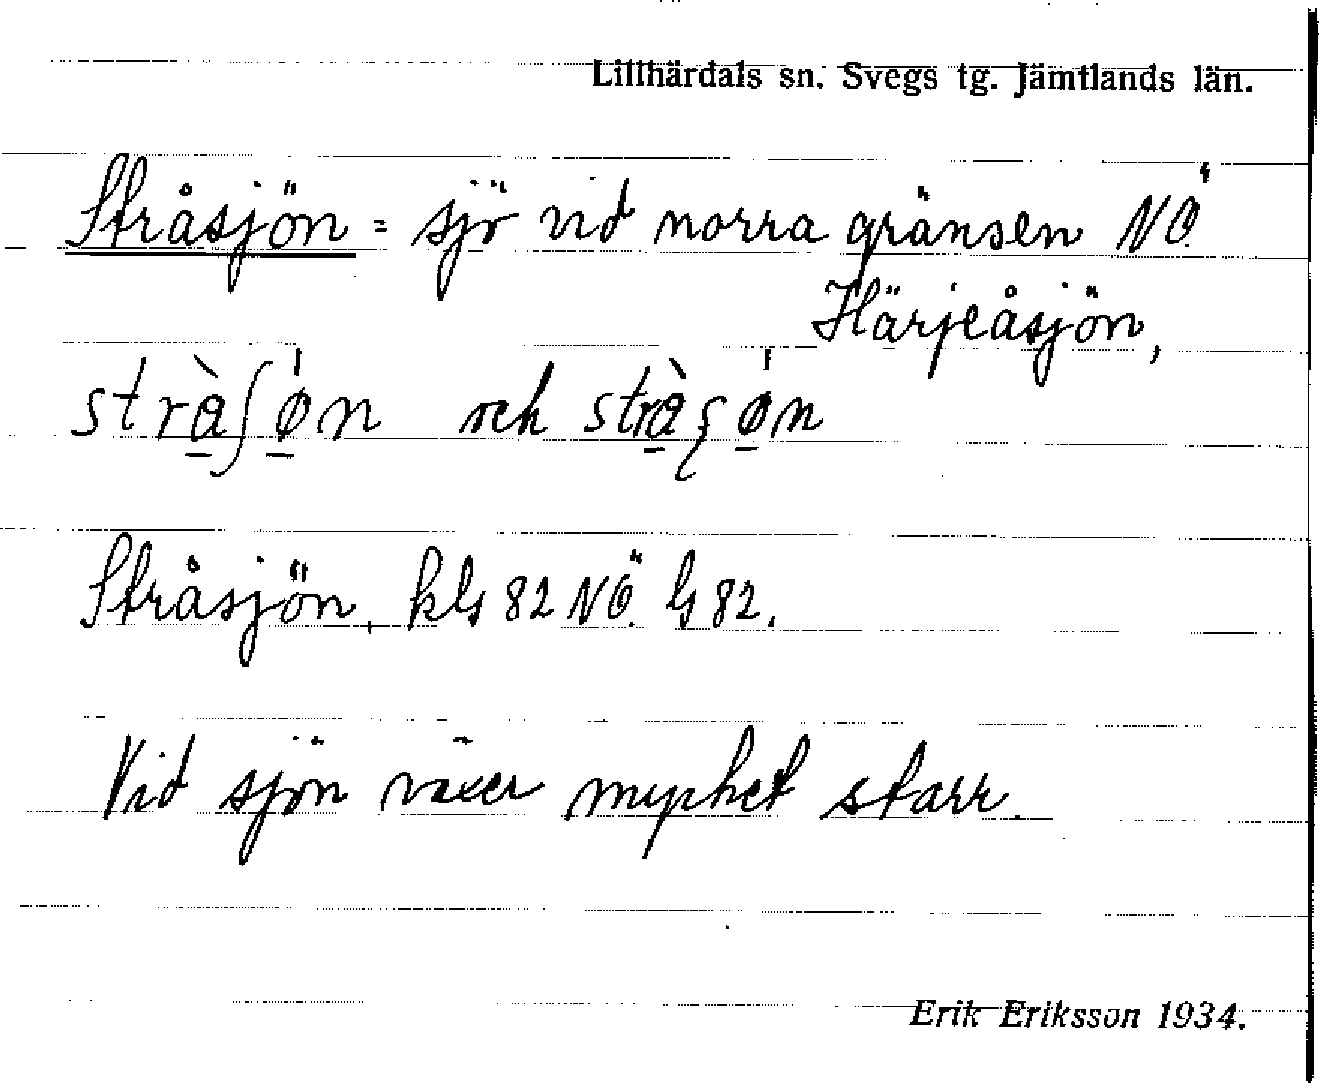 Lillhärdals sn. Svegs tg. Jämtlands län.
Stråsjön = sjö vid norra gränsen NÖ.
Härjeåsjön,
och
Stråsjön, 82 NÖ. 82.
Vid sjön växer mycket starr.
Erik Eriksson 1934.